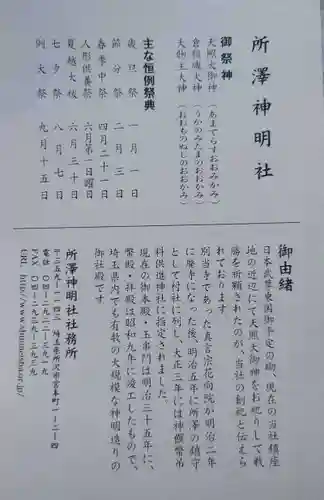 所澤神明社
御祭神
天照大御神(あまてらすおおみかみ)
倉稲魂大神(うかのみたまのおおかみ)
大物主大神(おおものぬしのおおかみ)
主な恒例祭典
歳旦祭 一月一日
節分祭 二月三日
春季中祭 四月二十一日
人形供養祭 六月第一日曜日
夏越大祓 六月三十日
七夕祭 八月七日
例大祭 九月十五日
御由緒
日本武尊東国御平定の砌、現在の当社鎮座
地の近辺にて天照大御神をお祀りして戦
勝を祈願されたのが、当社の創祀と伝えら
れております。
別当寺であった真言宗花向院が明治二年
に廃寺になった後、明治五年に所澤の鎮守
として村社に列し、大正三年には神饌幣帛
料供進神社に指定されました。
現在の御本殿・玉串門は明治三十五年に、
幣殿・拝殿は昭和九年に竣工したもので、
埼玉県内でも有数の大規模な神明造りの
御社殿です。
所澤神明社社務所
〒三五九―一一四三 埼玉県所沢市宮本町一―二―四
電話 〇四―二九二二―三九一九
FAX 〇四―二九三九―三九三九
URL http://www.shinmeisha.or.jp/